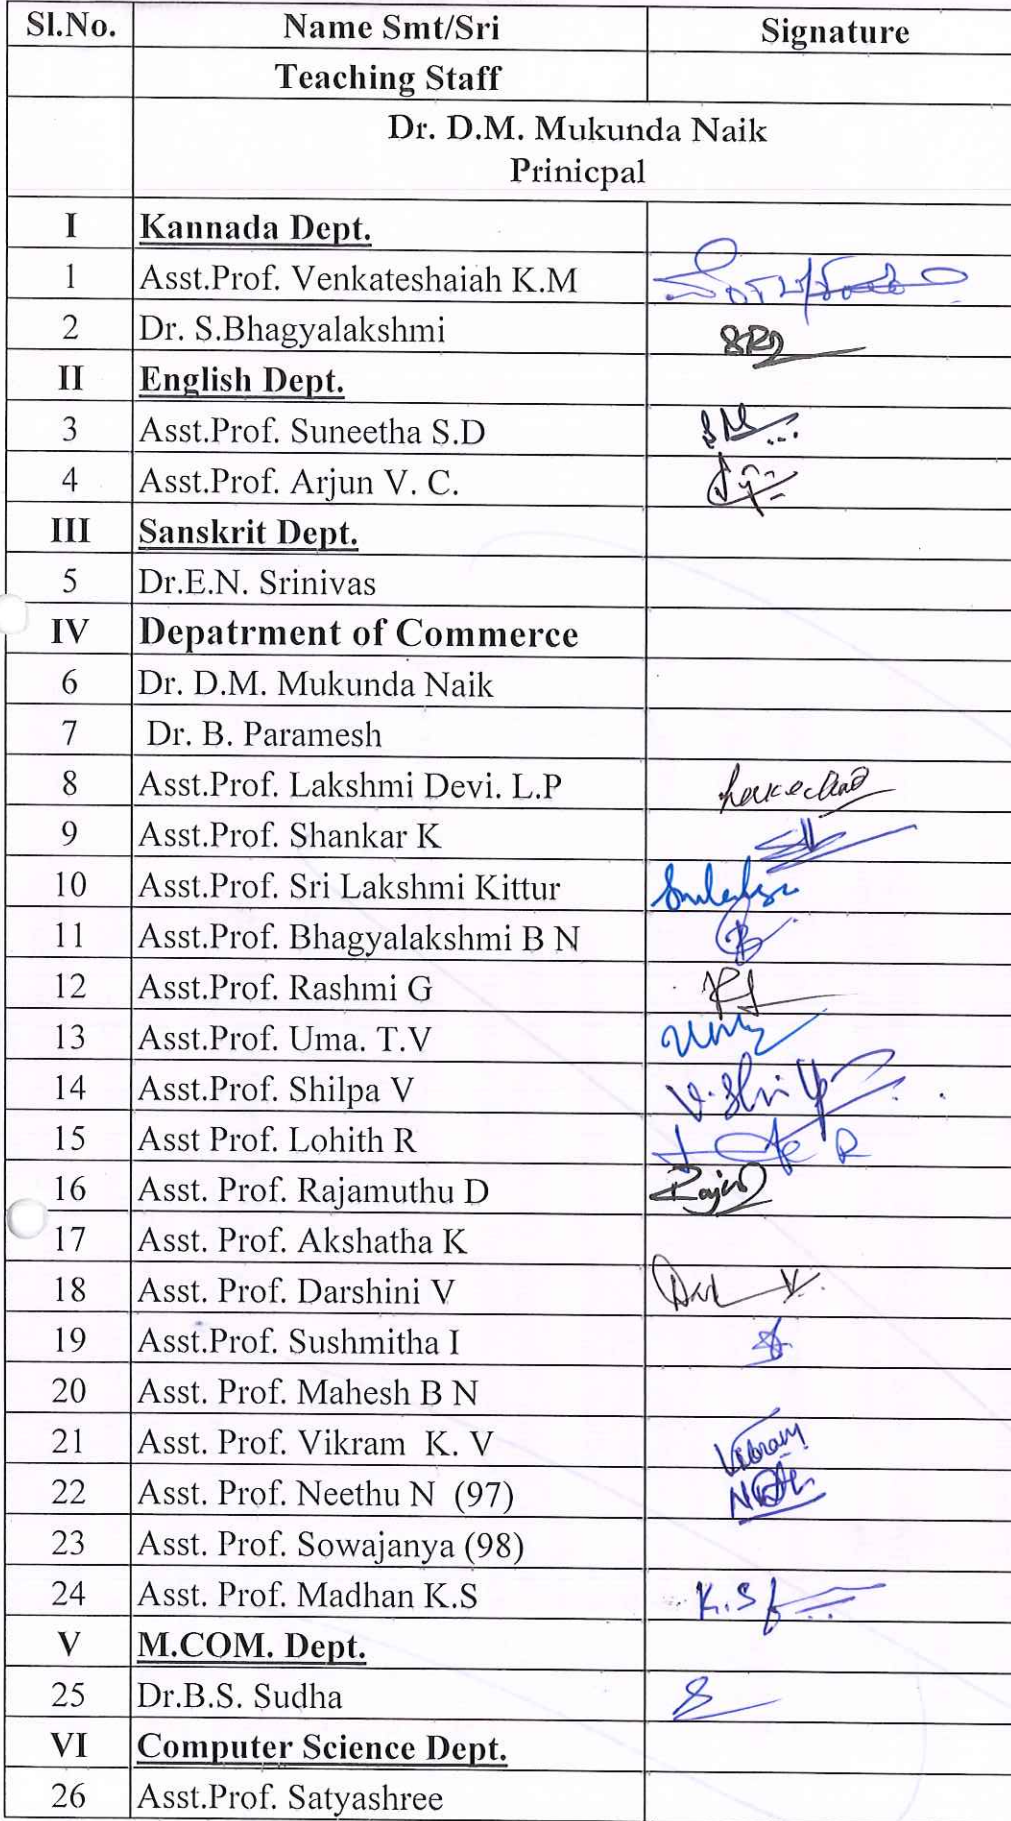 Sl.No. Name Smt/Sri Signature
Teaching Staff
Dr. D.M. Mukunda Naik
Prinicpal
I Kannada Dept.
1 Asst.Prof. Venkateshaiah K.M
2 Dr. S.Bhagyalakshmi
II English Dept.
3 Asst.Prof. Suneetha S.D
4 Asst.Prof. Arjun V. C.
III Sanskrit Dept.
5 Dr.E.N. Srinivas
IV Depatrment of Commerce
6 Dr. D.M. Mukunda Naik
7 Dr. B. Paramesh
8 Asst.Prof. Lakshmi Devi. L.P
9 Asst.Prof. Shankar K
10 Asst.Prof. Sri Lakshmi Kittur
11 Asst.Prof. Bhagyalakshmi B N
12 Asst.Prof. Rashmi G
13 Asst.Prof. Uma. T.V
14 Asst.Prof. Shilpa V
15 Asst Prof. Lohith R
16 Asst. Prof. Rajamuthu D
17 Asst. Prof. Akshatha K
18 Asst. Prof. Darshini V
19 Asst.Prof. Sushmitha I
20 Asst. Prof. Mahesh B N
21 Asst. Prof. Vikram K. V Vikram
22 Asst. Prof. Neethu N (97)
23 Asst. Prof. Sowajanya (98)
24 Asst. Prof. Madhan K.S
V M.COM. Dept.
25 Dr.B.S. Sudha
VI Computer Science Dept.
26 Asst.Prof. Satyashree